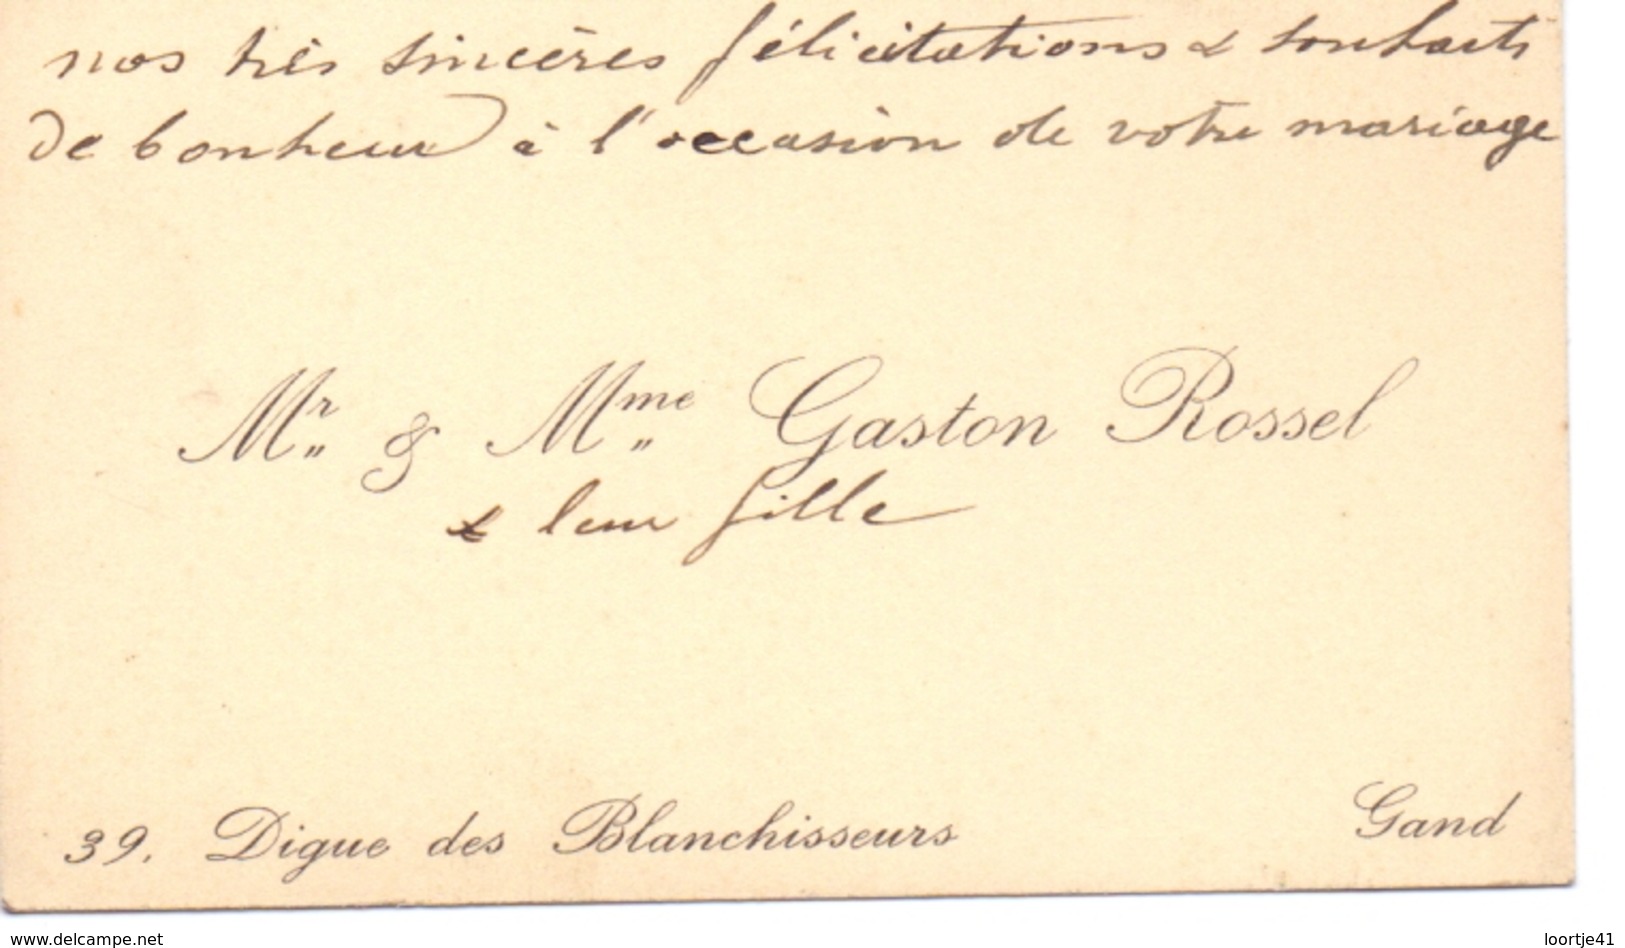 nos très sincères félicitations & souhaits
de bonheur à l'occasion de votre mariage
Mr & Mme Gaston Rossel
& leur fille
39. Digue des Blanchisseurs Gand
www.delcampe.net loortje41